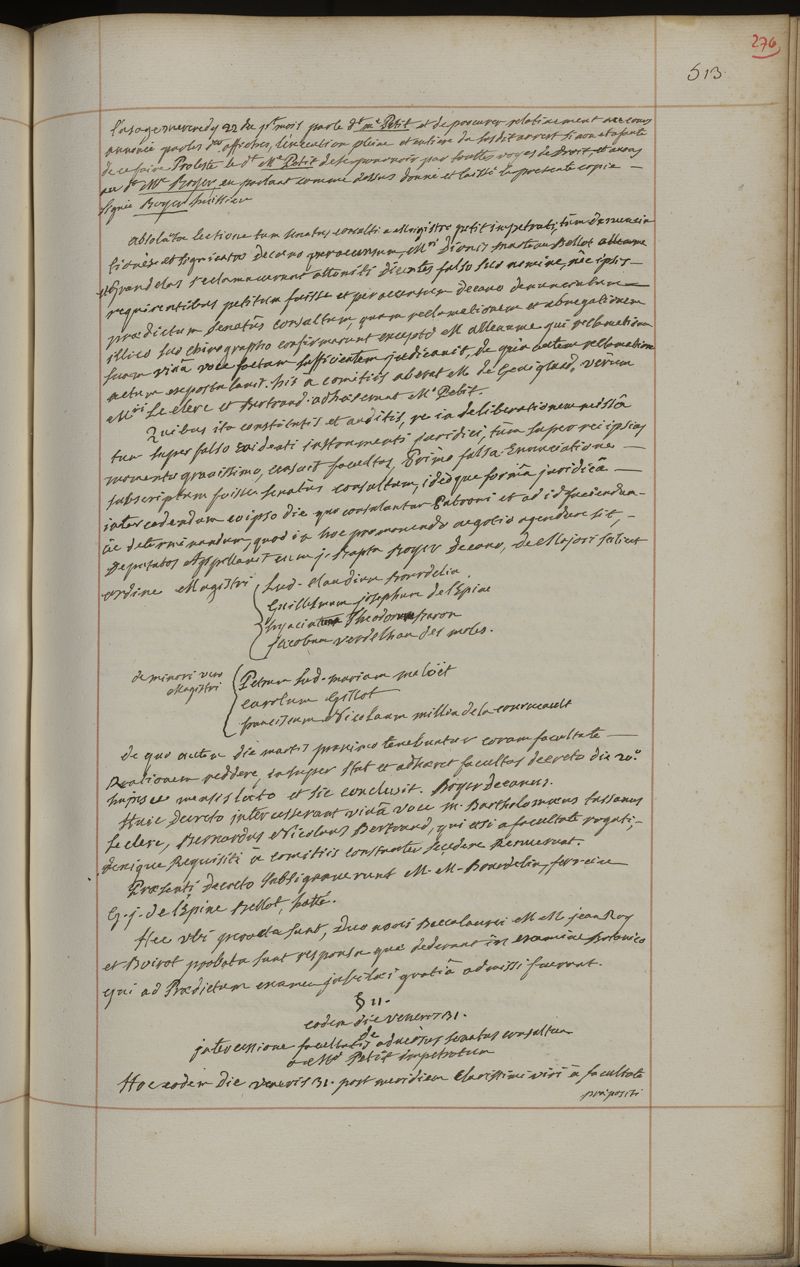 276
513
l'usage mercredy 22 du pt mois par le dt me Petit et de procurer relativement
annoncée par les des affiches, l'execution pleine et entiere du susdit arrest sinon et a faute
de ce faire Proteste le dt Me Petit de se pourvoir par toutes voyes de Droit et avons
au dt Me Boyer en parlant comme dessus donné et laissé la presente copie —
signée Boyer huissier
absoluta lectione tum senatus consulti a Magistro petit impetrati, tum denuncia
tionis et significatae decano per accensum, Mri Dionis Belot alleaume
et Grandelas reclamaverunt attoniti dicentes falso suo nomine, nec ipsis —
requirentibus petitum fuisse et per accensum decano denunciatum —
praedictum senatus consultum, quam reclamationem et abnegationem
illico suo chirographo confirmarunt excepto M alleaume qui reclamationem
suam vivâ voce factam sufficientem judicavit, de quâ autem reclamatione
actum expostulavit. his a comitiis aberat M de Gevigland, verum
Mri Le clerc et Bertrand adhaeserunt Mo Petit.
Quibus ita constitutis et auditis, re in deliberationem missâ
tum super falso evidenti instrumenti juridici, tùm super rei ipsius
momento gravissimo, censuit facultas, Primo falsa Enunciatione —
subscriptum fuisse senatus consultum, ideòque formâ juridicâ —
intercedendum eo ipso die quo consulantur Patroni et ad id faciendum
ac determinandum, quod in hoc promovendo negotio agendum sit, —
deputatos Appellavit cum j. Bapta Boyer Decano, de Majori scilicet
ordine Magistri Lud. Claudium Bourdelin
Guillelmum josephum de l'Epine
hyacinthum Theodorum Baron
jacobum verdelhan des moles.
de minori vero Petrum Lud. mariam maloët
Magistri carolum Gillot
franciscum Nicolaum millin de la courveault
de quo autem die martis proximo tenebuntur coram facultate —
Rationem reddere, insuper stat et adhaeret facultas decreto die 20a
hujusce mensis lato et sic conclusit. Boyer decanus.
Huic decreto intercesserunt vivâ voce m. Bartholomaeus tussanus
Le clerc, Bernardus Nicolaus Bertrand, qui etsi a facultate rogati, —
denique Requisiti a comitiis constanter secedere renuerunt.
Praesenti decreto subsignaverunt M. M. Bourdelin, ferrein
G. j. de l'Epine Bellot, hatté.
Hec ubi peracta sunt, duo novi Baccalaurei M M jean Roy
et Boirot probata sunt responsa quae dederant in examine Botanico
qui ad Praedictum examen jubilaei gratiâ admissi fuerunt.
§ 11.
eodem die veneris 31.
de
intercessione facultatis adversus senatus consultum
a Mro Petit impetratum
Hoc eodem die veneris 31. post meridiem Clarissimi viri a facultate
praepositi